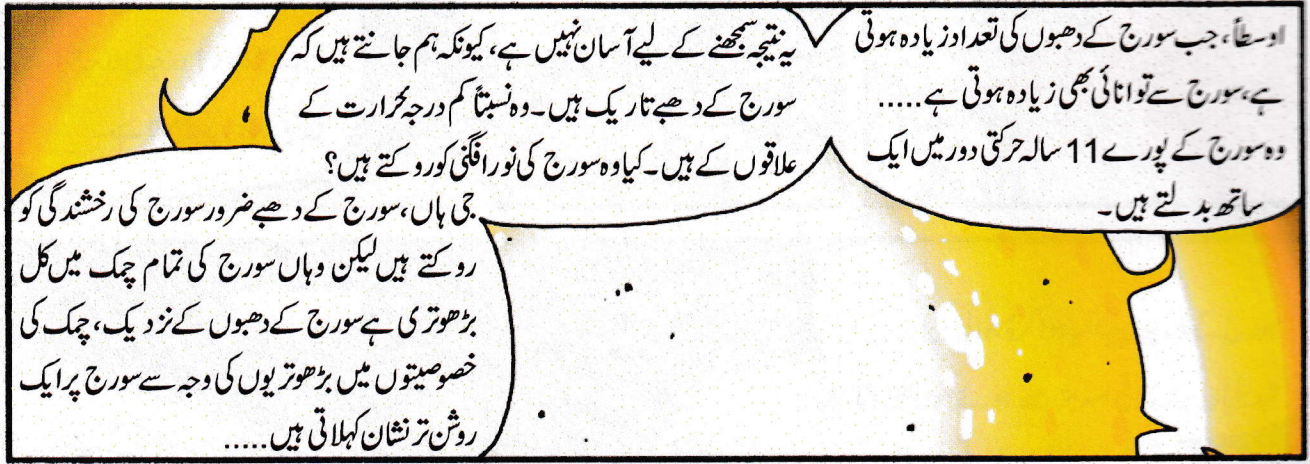 اوسطاً، جب سورج کے دھبوں کی تعداد زیادہ ہوتی
ہے، سورج سے توانائی بھی زیادہ ہوتی ہے.....
وہ سورج کے پورے 11 سالہ حرکتی دور میں ایک
ساتھ بدلتے ہیں۔
یہ نتیجہ سمجھنے کے لیے آسان نہیں ہے، کیونکہ ہم جانتے ہیں کہ
سورج کے دھبے تاریک ہیں۔ وہ نسبتاً کم درجہ حرارت کے
علاقوں کے ہیں۔ کیا وہ سورج کی نور افگنی کو روکتے ہیں؟
جی ہاں، سورج کے دھبے ضرور سورج کی رخشندگی کو
روکتے ہیں لیکن وہاں سورج کی تمام چمک میں کل
بڑھوتری ہے سورج کے دھبوں کے نزدیک، چمک کی
خصوصیتوں میں بڑھوتریوں کی وجہ سے سورج پر ایک
روشن تر نشان کہلاتی ہیں.....